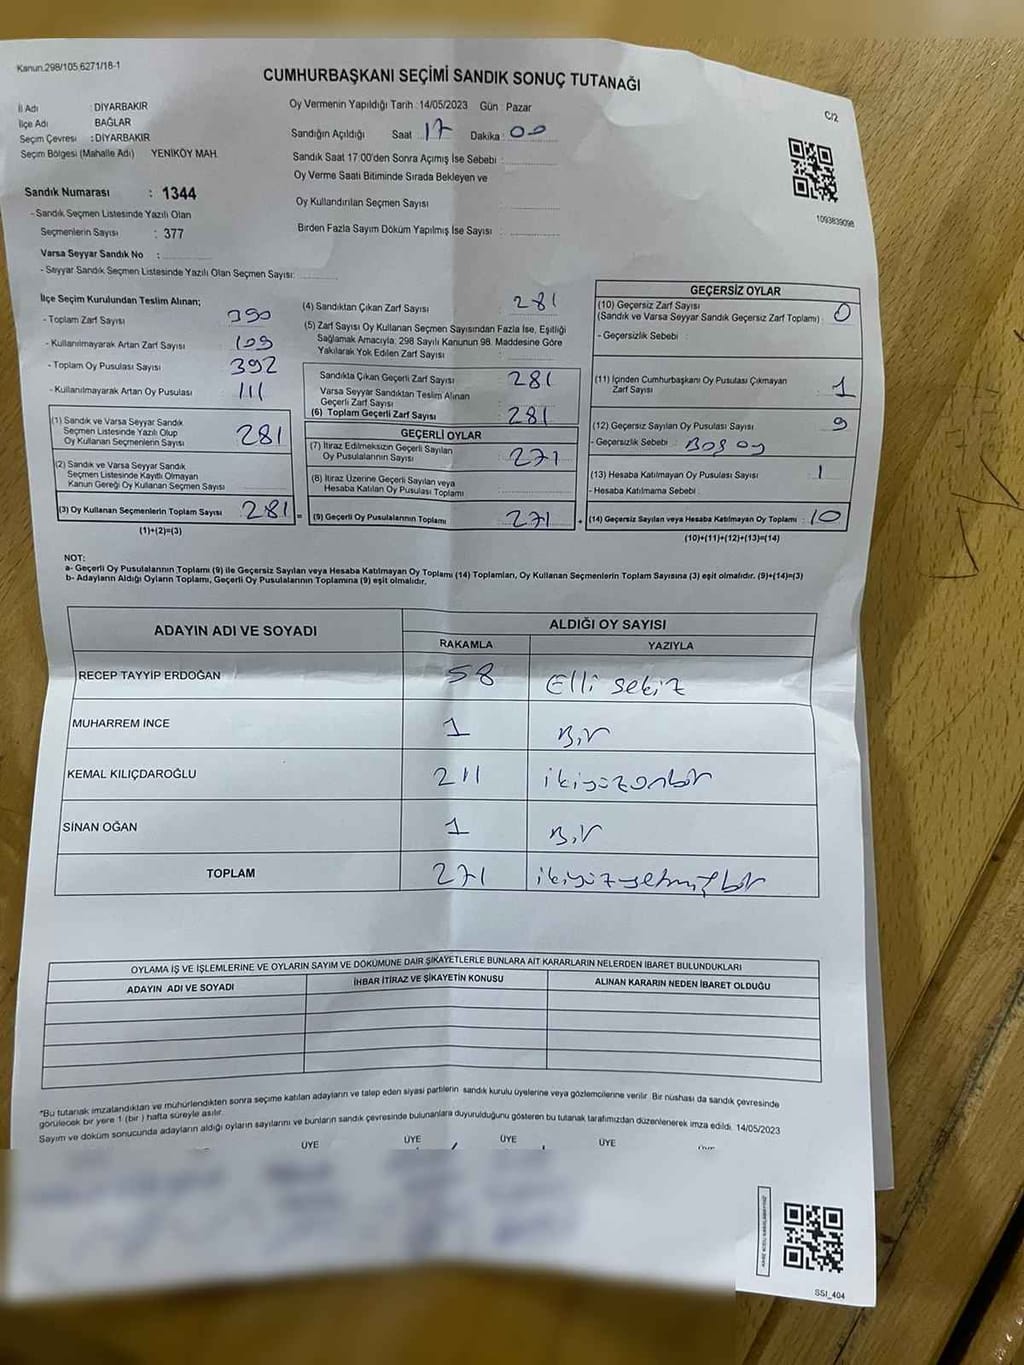 Kanun.298/105,6271/18-1
CUMHURBAŞKANI SEÇİMİ SANDIK SONUÇ TUTANAĞI
C/2
İl Adı : DİYARBAKIR
İlçe Adı BAĞLAR
Seçim Çevresi : DİYARBAKIR
Seçim Bölgesi (Mahalle Adı) YENİKÖY MAH.
Oy Vermenin Yapıldığı Tarih : 14/05/2023 Gün : Pazar
Sandığın Açıldığı Saat : 17 Dakika : 00
Sandık Saat 17:00'den Sonra Açımış İse Sebebi :
Oy Verme Saati Bitiminde Sırada Bekleyen ve
Oy Kullandırılan Seçmen Sayısı
Birden Fazla Sayım Döküm Yapılmış İse Sayısı :
1093839098
Sandık Numarası : 1344
- Sandık Seçmen Listesinde Yazılı Olan
Seçmenlerin Sayısı : 377
Varsa Seyyar Sandık No :
- Seyyar Sandık Seçmen Listesinde Yazılı Olan Seçmen Sayısı:
İlçe Seçim Kurulundan Teslim Alınan;
- Toplam Zarf Sayısı 390
- Kullanılmayarak Artan Zarf Sayısı 109
- Toplam Oy Pusulası Sayısı 392
- Kullanılmayarak Artan Oy Pusulası 111
(1) Sandık ve Varsa Seyyar Sandık
Seçmen Listesinde Yazılı Olup
Oy Kullanan Seçmenlerin Sayısı 281
(2) Sandık ve Varsa Seyyar Sandık
Seçmen Listesinde Kayıtlı Olmayan
Kanun Gereği Oy Kullanan Seçmen Sayısı
(3) Oy Kullanan Seçmenlerin Toplam Sayısı 281
(1)+(2)=(3)
(4) Sandıktan Çıkan Zarf Sayısı 281
(5) Zarf Sayısı Oy Kullanan Seçmen Sayısından Fazla İse, Eşitliği
Sağlamak Amacıyla, 298 Sayılı Kanunun 98. Maddesine Göre
Yakılarak Yok Edilen Zarf Sayısı
Sandıkta Çıkan Geçerli Zarf Sayısı 281
Varsa Seyyar Sandıktan Teslim Alınan
Geçerli Zarf Sayısı
(6) Toplam Geçerli Zarf Sayısı 281
GEÇERLİ OYLAR
(7) İtiraz Edilmeksizin Geçerli Sayılan
Oy Pusulalarının Sayısı 271
(8) İtiraz Üzerine Geçerli Sayılan veya
Hesaba Katılan Oy Pusulası Toplamı
= (9) Geçerli Oy Pusulalarının Toplamı 271
GEÇERSİZ OYLAR
(10) Geçersiz Zarf Sayısı
(Sandık ve Varsa Seyyar Sandık Geçersiz Zarf Toplamı) : 0
- Geçersizlik Sebebi
(11) İçinden Cumhurbaşkanı Oy Pusulası Çıkmayan
Zarf Sayısı 1
(12) Geçersiz Sayılan Oy Pusulası Sayısı 9
- Geçersizlik Sebebi : Boş oy
(13) Hesaba Katılmayan Oy Pusulası Sayısı 1
- Hesaba Katılmama Sebebi
+ (14) Geçersiz Sayılan veya Hesaba Katılmayan Oy Toplamı : 10
(10)+(11)+(12)+(13)=(14)
NOT:
a- Geçerli Oy Pusulalarının Toplamı (9) ile Geçersiz Sayılan veya Hesaba Katılmayan Oy Toplamı (14) Toplamları, Oy Kullanan Seçmenlerin Toplam Sayısına (3) eşit olmalıdır. (9)+(14)=(3)
b- Adayların Aldığı Oyların Toplamı, Geçerli Oy Pusulalarının Toplamına (9) eşit olmalıdır.
ADAYIN ADI VE SOYADI ALDIĞI OY SAYISI
RAKAMLA YAZIYLA
RECEP TAYYİP ERDOĞAN 58 Elli sekiz
MUHARREM İNCE 1 Bir
KEMAL KILIÇDAROĞLU 211 ikiyüzonbir
SİNAN OĞAN 1 Bir
TOPLAM 271 ikiyüzyetmişbir
OYLAMA İŞ VE İŞLEMLERİNE VE OYLARIN SAYIM VE DÖKÜMÜNE DAİR ŞİKAYETLERLE BUNLARA AİT KARARLARIN NELERDEN İBARET BULUNDUKLARI
ADAYIN ADI VE SOYADI İHBAR İTİRAZ VE ŞİKAYETİN KONUSU ALINAN KARARIN NEDEN İBARET OLDUĞU
*Bu tutanak imzalandıktan ve mühürlendikten sonra seçime katılan adayların ve talep eden siyasi partilerin sandık kurulu üyelerine veya gözlemcilerine verilir. Bir nüshası da sandık çevresinde
görülecek bir yere 1 (bir ) hafta süreyle asılır.
Sayım ve döküm sonucunda adayların aldığı oyların sayılarını ve bunların sandık çevresinde bulunanlara duyurulduğunu gösteren bu tutanak tarafımızdan düzenlenerek imza edildi. 14/05/2023
ÜYE ÜYE ÜYE ÜYE
SSI_404